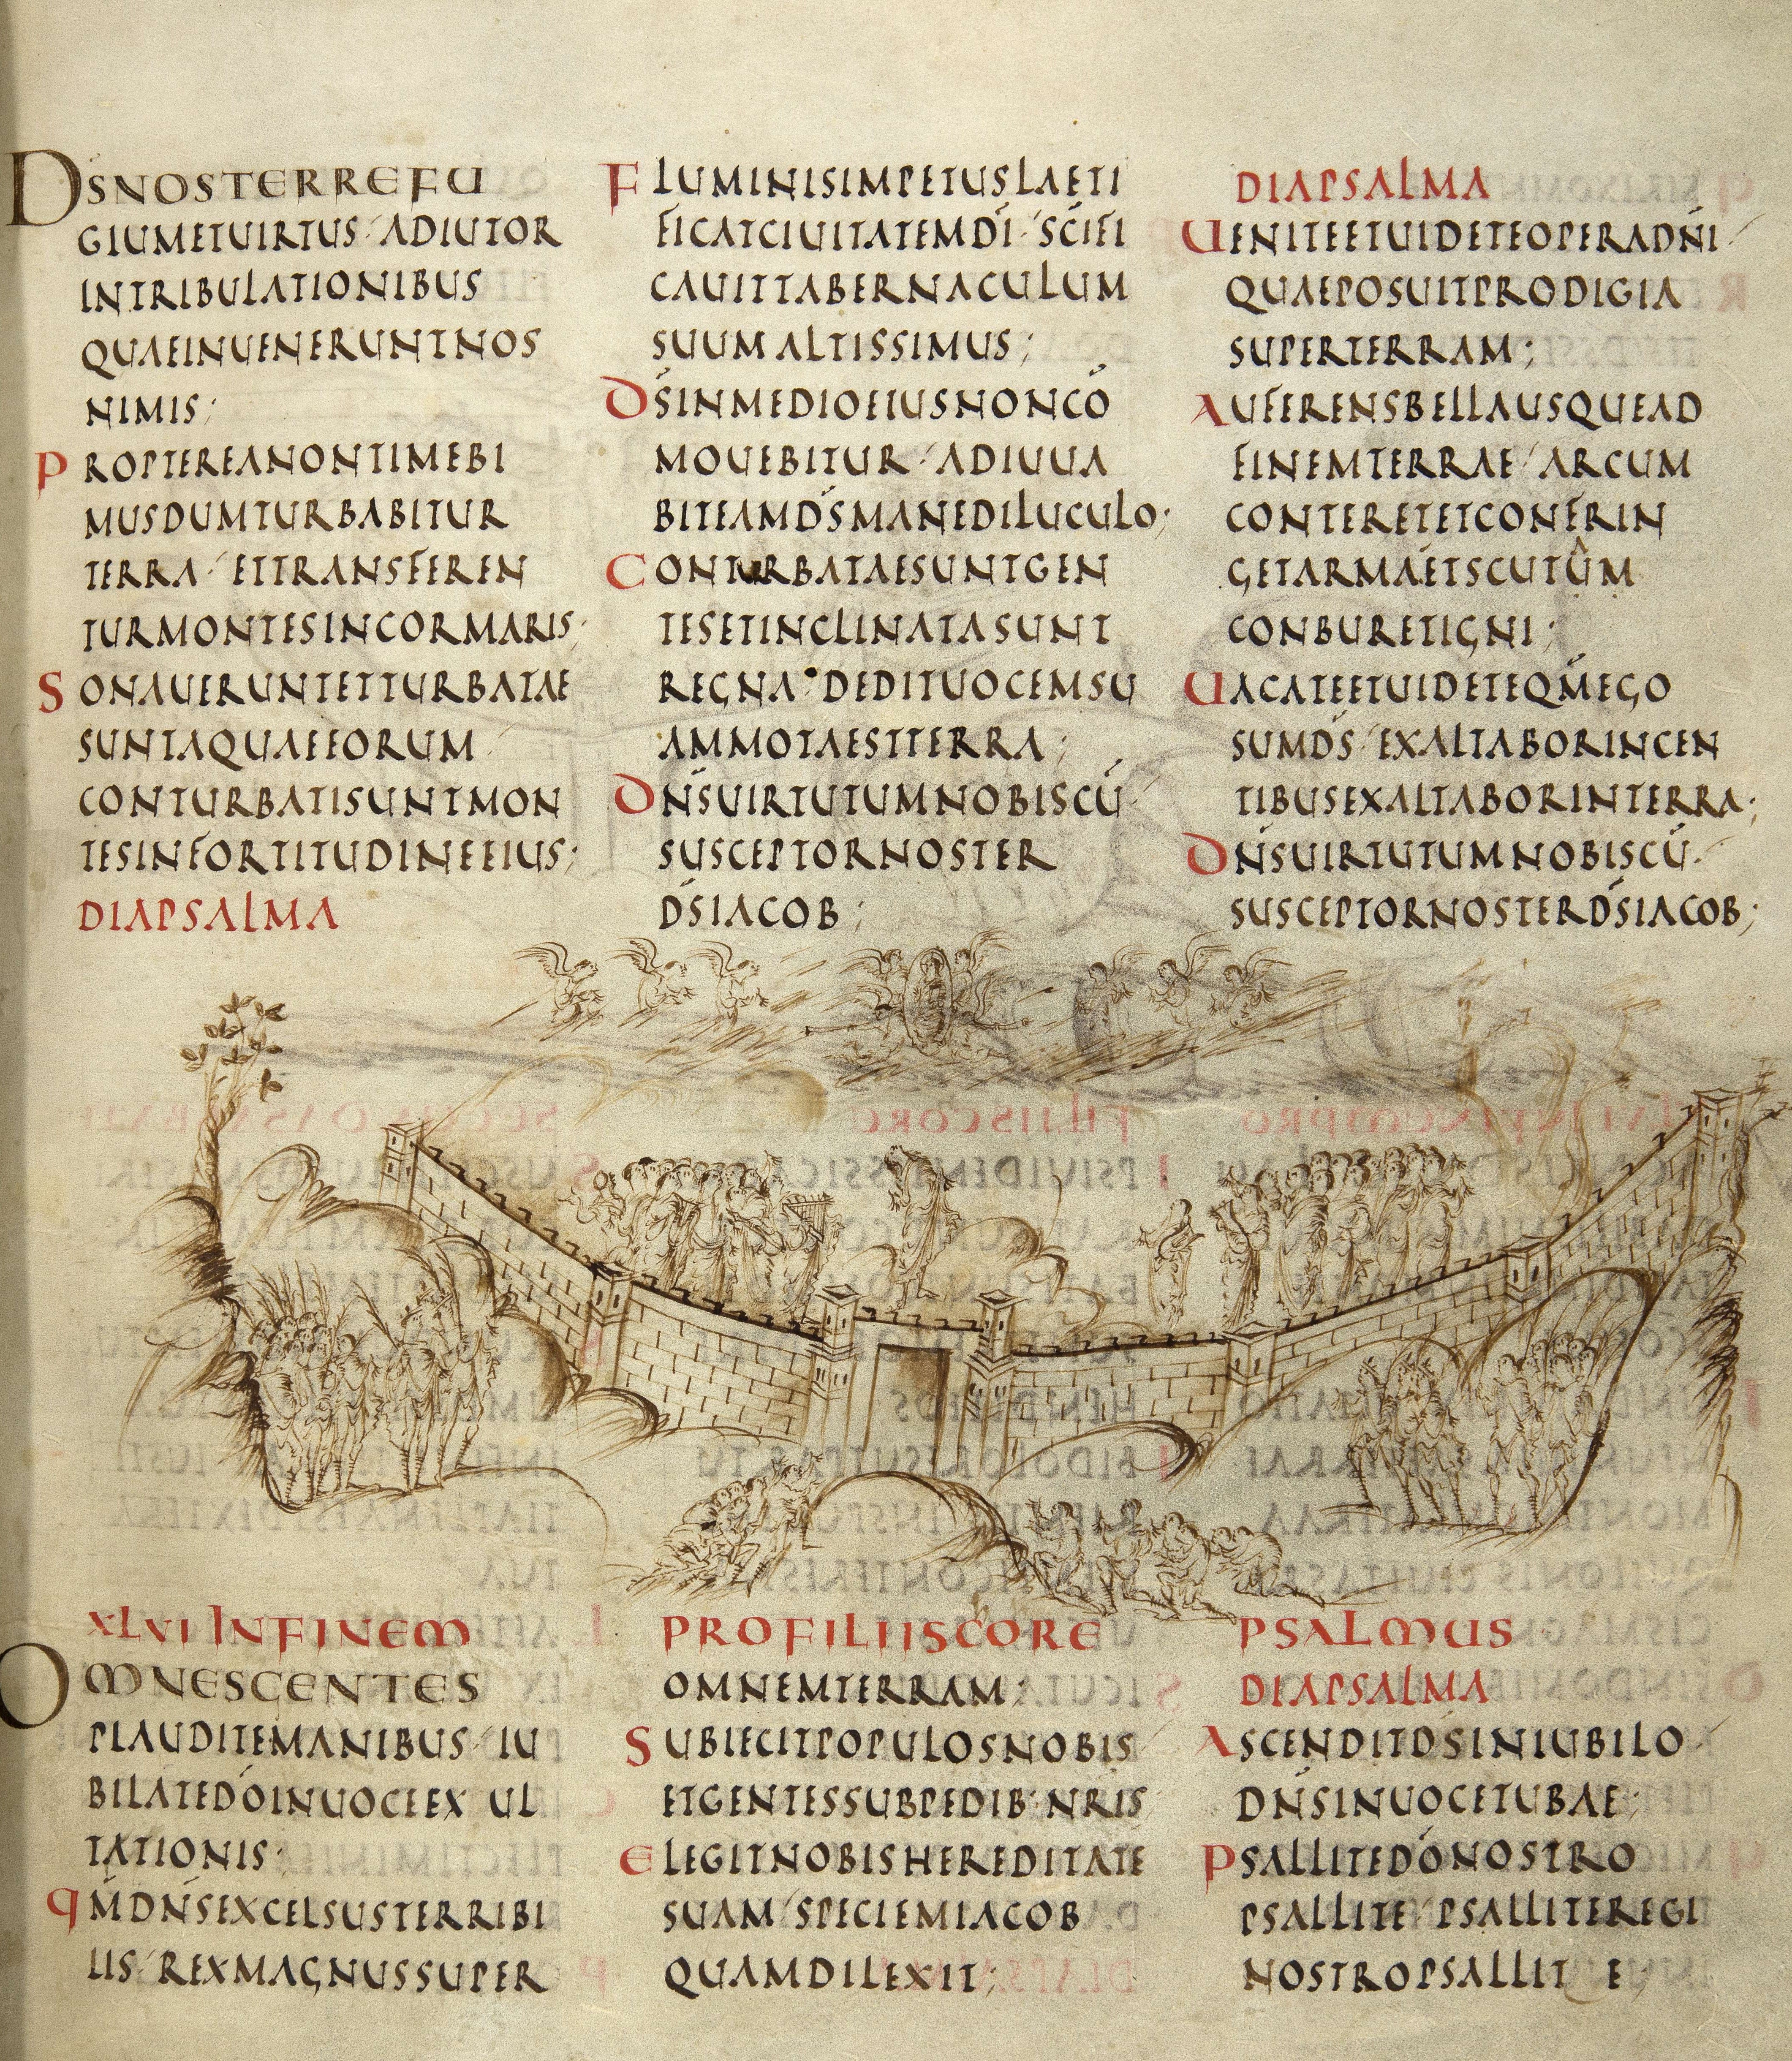 DS̄NOSTERREFU
GIUMETUIRTUS·ADIUTOR
INTRIBULATIONIBUS
QUAEINUENERUNTNOS
NIMIS;
PROPTEREANONTIMEBI
MUSDUMTURBABITUR
TERRA·ETTRANSFEREN
TURMONTESINCORMARIS;
SONAUERUNTETTURBATAE
SUNTAQUAEEORUM·
CONTURBATISUNTMON
TESINFORTITUDINEEIUS;
DIAPSALMA
FLUMINISIMPETUSLAETI
FICATCIUITATEMDĪ·SC̄IFI
CAUITTABERNACULUM
SUUMALTISSIMUS;
DS̄INMEDIOEIUSNONCŌ
MOUEBITUR·ADIUUA
BITEAMDS̄MANEDILUCULO;
CONTURBATAESUNTGEN
TESETINCLINATASUNT
REGNA·DEDITUOCEMSU
AMMOTAESTTERRA;
DN̄SUIRTUTUMNOBISCŪ·
SUSCEPTORNOSTER
DS̄IACOB;
DIAPSALMA
UENITEETUIDETEOPERADN̄I·
QUAEPOSUITPRODIGIA
SUPERTERRAM;
AUFERENSBELLAUSQUEAD
FINEMTERRAE·ARCUM
CONTERETETCONFRIN
GETARMAETSCUTUM
CONBURETIGNI;
UACATEETUIDETEQM̄EGO
SUMDS̄·EXALTABORINGEN
TIBUSEXALTABORINTERRA;
DN̄SUIRTUTUMNOBISCŪ·
SUSCEPTORNOSTERDS̄IACOB;
XLVI INFINEM PROFILIISCORE PSALMUS
OMNESGENTES
PLAUDITEMANIBUS·IU
BILATEDŌINUOCEEXUL
TATIONIS;
QM̄DN̄SEXCELSUSTERRIBI
LIS·REXMAGNUSSUPER
OMNEMTERRAM;
SUBIECITPOPULOSNOBIS
ETGENTESSUBPEDIB·NRIS
ELEGITNOBISHEREDITATE
SUAM·SPECIEMIACOB
QUAMDILEXIT;
DIAPSALMA
ASCENDITDS̄INIUBILO·
DN̄SINUOCETUBAE;
PSALLITEDŌNOSTRO
PSALLITE·PSALLITEREGI
NOSTROPSALLITE;